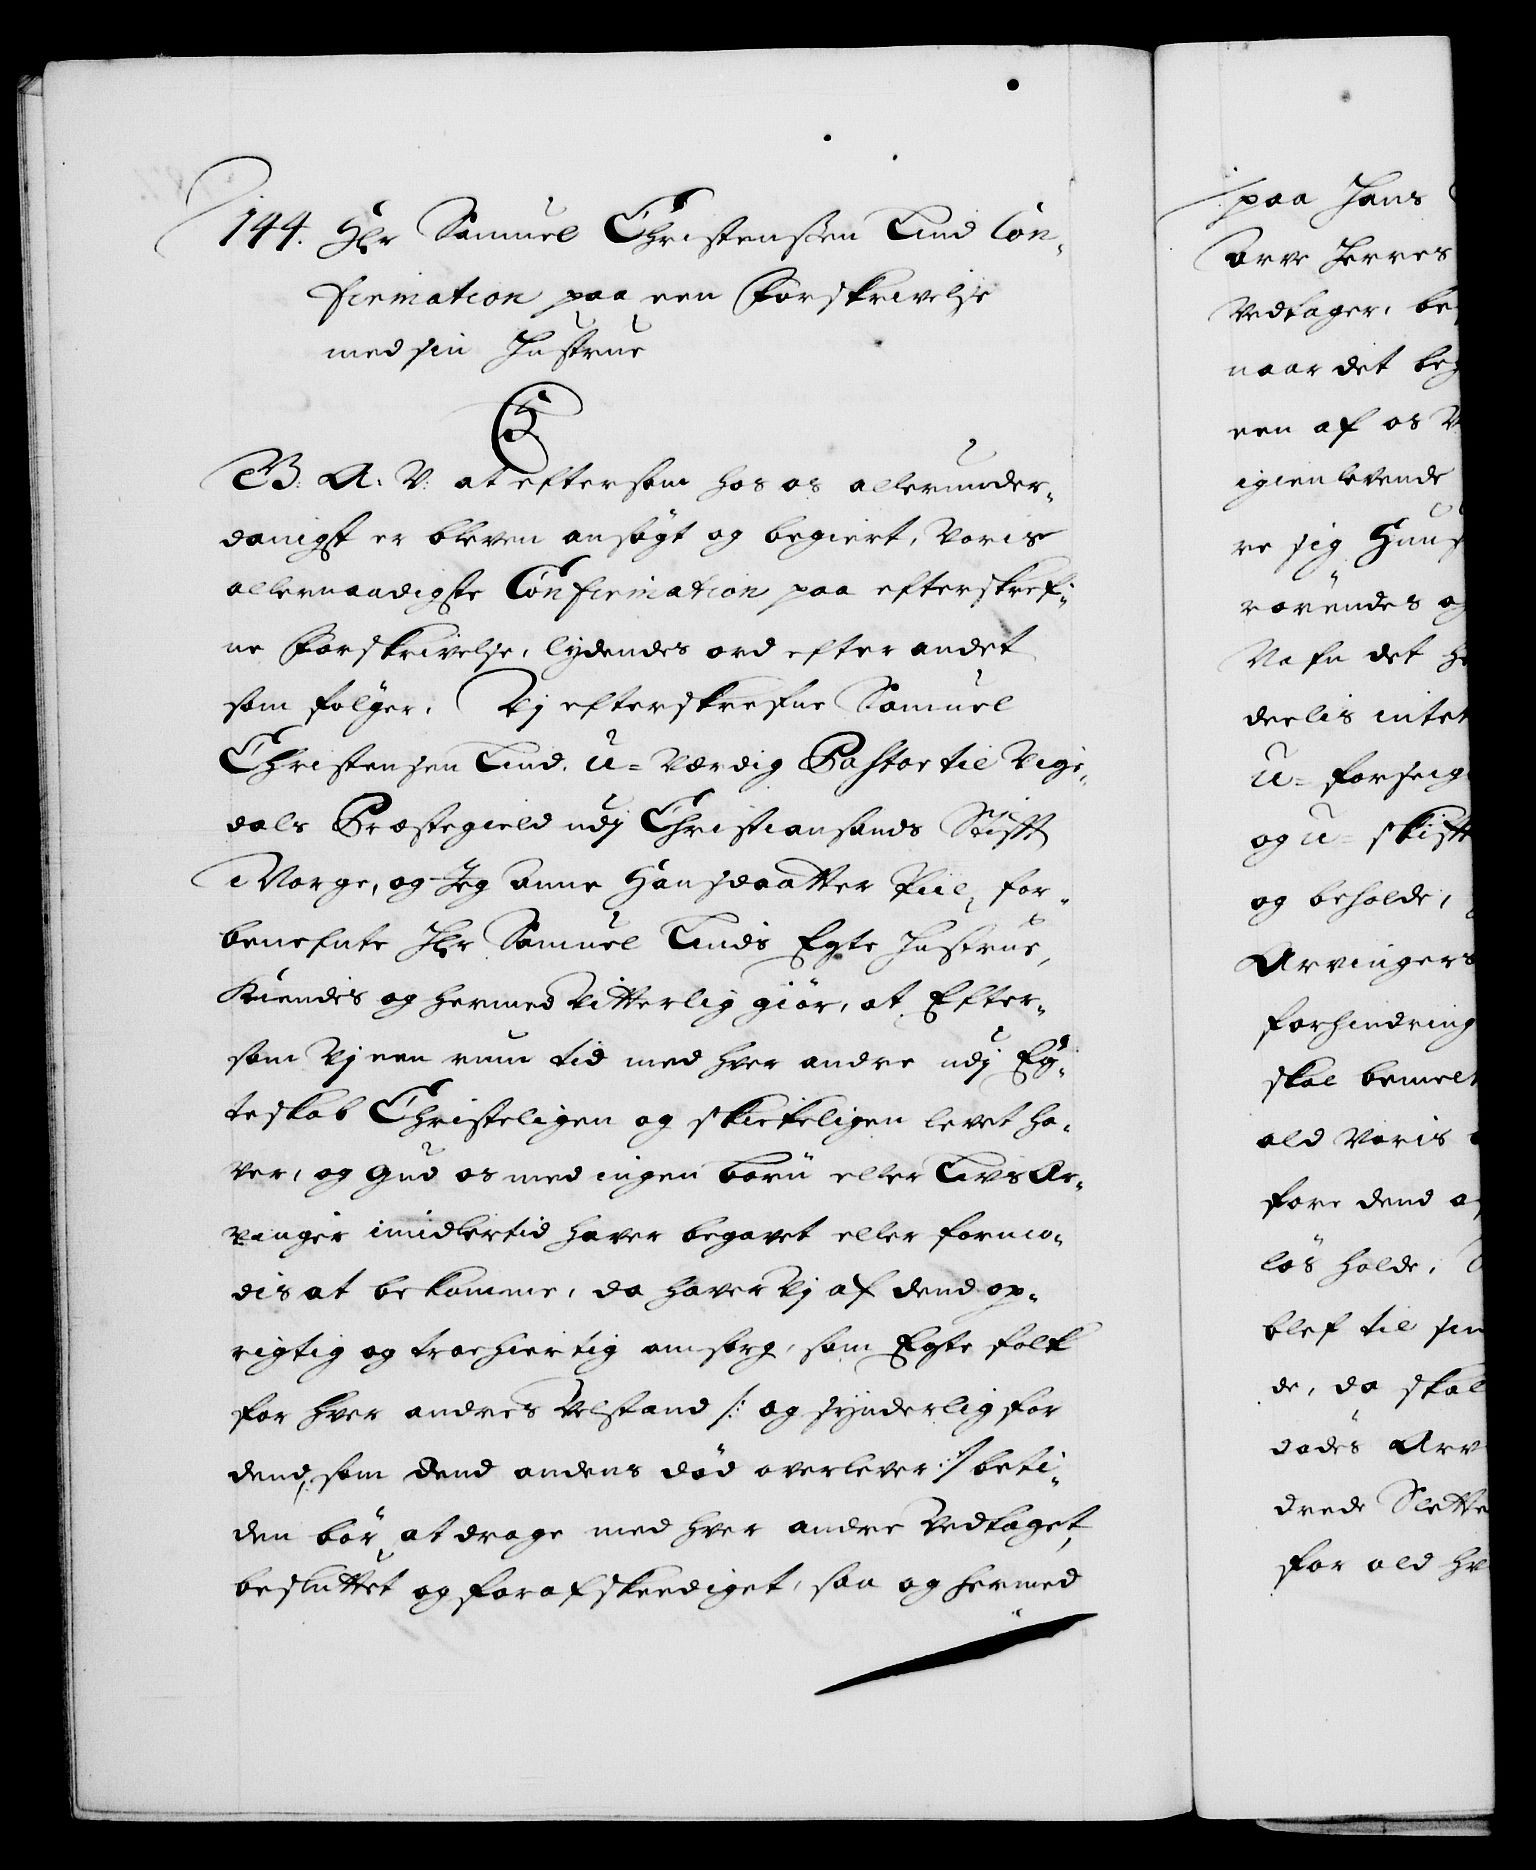 144. Hr Samuel Christensen Lind Con-
firmation paa een Forskrivelse
med sin Hustrue
C5
G. A. V: at eftersom hos os allerunder-
danigst er bleven ansøgt og begiert, Voris
allernaadigste Confirmation paa efterskref-
ne Forskrivelse, lydendes ord efter andet
som følger. Vj efterskrefne Samuel
Christensen Lind, U-værdig Pastor til Vigs-
dals Præstegield udj Christiansands Stift
i Norge, og Jeg Anne Hansdaatter Piil, for-
benefnte Hr Samuel Linds Egte Hustrue,
Kiendes og hermed Vitterlig giør, at Efter-
som Vj een rum tid med hver andre udj Eg-
teskab Christeligen og skickeligen levet ha-
ver, og Gud os med ingen børn eller Livs Ar-
vinger imidlertid haver begavet eller formo-
dis at bekomme, da haver Vj af dend op-
rigtig og troehiertig omsorg, som Egte folk
for hver andres Velstand /: og synderlig for
dend, som dend andens død overlever :/ beti-
den bør at drage med hver andre Vedtaget,
besluttet og forafskeediget, saa og hermed
paa Hans
Arve Herres
Vedtager, be
naar det beg
een af os V
igienlevende
re sig Huus
rørendes og
Nafn det h
deelis intet
U-forseig
og U-skift
og beholde,
Arvingers
forhindring
skal bemelt
ald Voris
fore dend a
løs holde,
blef til sin
de, da skal
dødes Arv
drede Slette
for ald hv